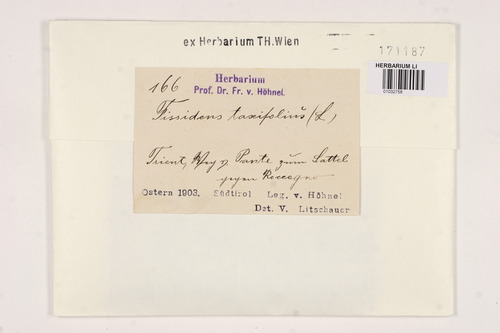 ex Herbarium TH.Wien
171187
HERBARIUM LI
166
Herbarium
Prof. Dr. Fr. v. Höhnel.
Fissidens taxifolius (L)
Trient, Weg v. Ponte zum Sattel
gegen Roccegno
Ostern 1903. Südtirol Leg. v. Höhnel
Det. V. Litschauer